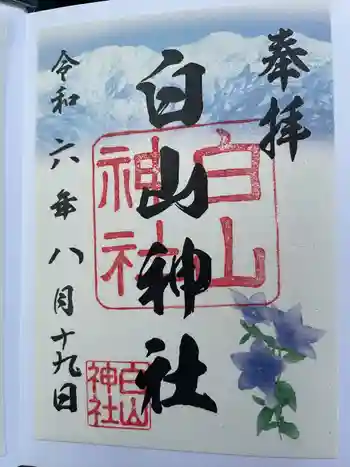 奉拝
白山神社
令和六年八月十九日
白山
神社
白山
神社